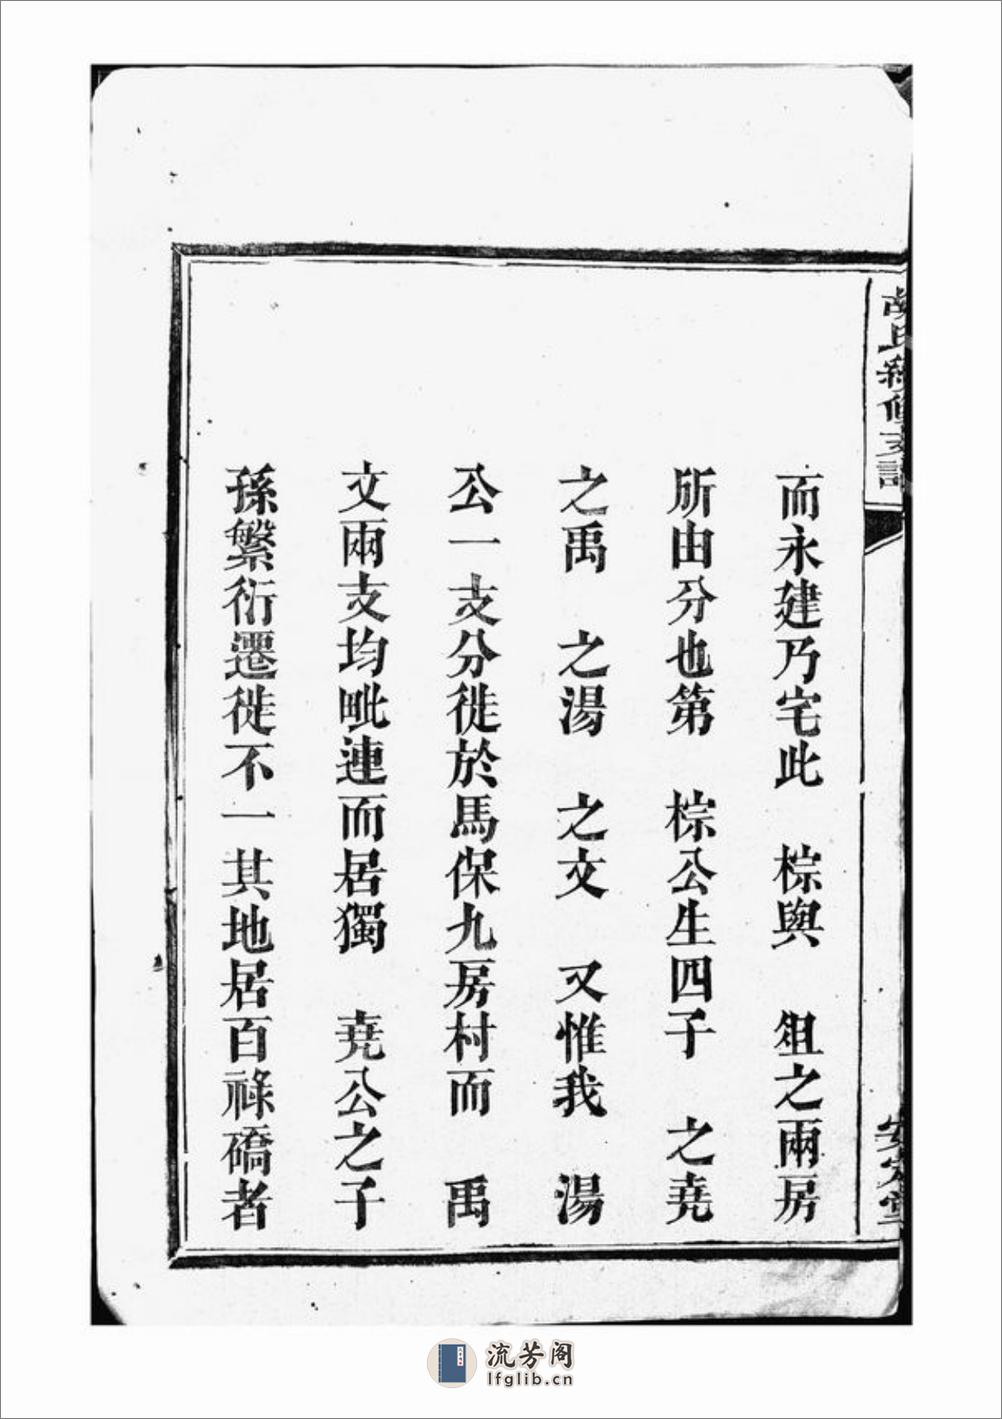 胡氏續修支譜
安定堂
而永建乃宅此　棕與　俎之兩房
所由分也第　棕公生四子　之堯
之禹　之湯　之文　又惟我　湯
公一支分徙於馬保九房村而　禹
文兩支均毗連而居獨　堯公之子
孫繁衍遷徙不一其地居百祿礄者
流芳阁
lfglib.cn